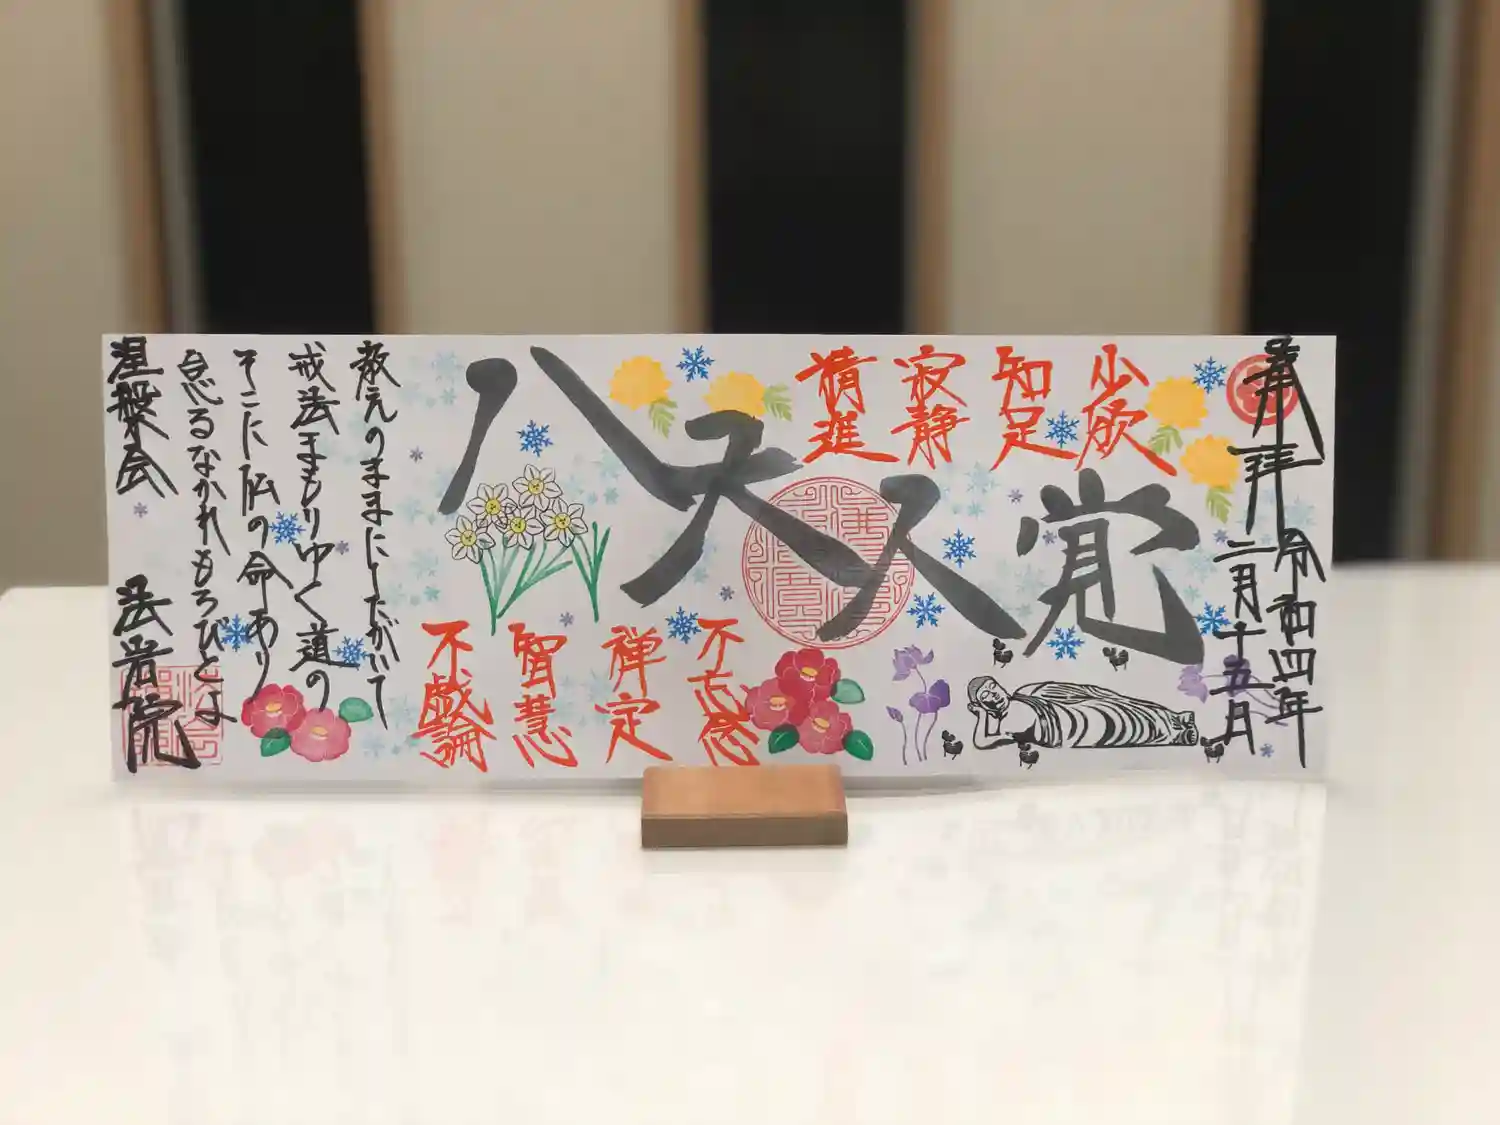 奉拝
令和四年
二月十五日
八大人覚
少欲
知足
寂静
精進
不忘念
禅定
智慧
不戯論
教えのままにしたがいて
戒法まもりゆく道の
そこに仏の命あり
怠るなかれもろびとよ
涅槃会
法岩院